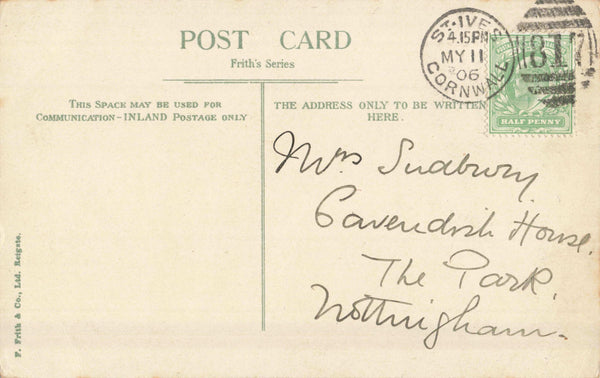 POST CARD
Frith's Series
THIS SPACE MAY BE USED FOR
COMMUNICATION-INLAND POSTAGE ONLY
THE ADDRESS ONLY TO BE WRITTEN
HERE.
ST. IVES
4.15PM
MY 11
06
CORNWALL
817
HALF PENNY
Mrs Sudbury.
Cavendish House.
The Park.
Nottingham.
F. Frith & Co., Ltd. Reigate.